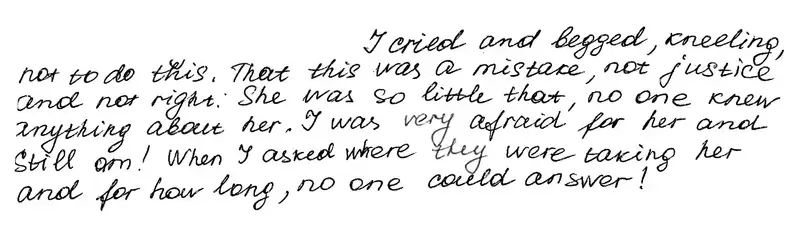 I cried and begged, kneeling,
not to do this. That this was a mistake, not justice
and not right. She was so little that, no one knew
anything about her. I was very afraid for her and
still am! When I asked where they were taking her
and for how long, no one could answer!